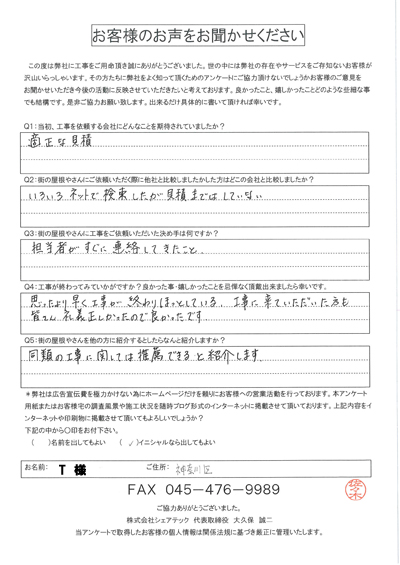 お客様のお声をお聞かせください
この度は弊社に工事をご用命頂き誠にありがとうございました。世の中には弊社の存在やサービスをご存知ないお客様が
沢山いらっしゃいます。その方たちに弊社をよく知って頂くためのアンケートにご協力頂けないでしょうかお客様のご意見を
お聞かせいただき今後の活動に反映させていただきたいと考えております。良かったこと、嬉しかったことどのような些細な事
でも結構です。是非ご協力お願い致します。出来るだけ具体的に書いて頂ければ幸いです。
Q1:当初、工事を依頼する会社にどんなことを期待されていましたか?
適正な見積
Q2:街の屋根やさんにご依頼いただく際に他社と比較しましたかした方はどこの会社と比較しましたか?
いろいろネットで検索したが見積まではしていない
Q3:街の屋根やさんに工事をご依頼いただいた決め手は何ですか?
担当者がすぐに連絡してきたこと。
Q4:工事が終わってみていかがですか?良かった事・嬉しかったことを忌憚なく頂戴出来ましたら幸いです。
思ったより早く工事が終わりほっとしている。工事に来ていただいた方も
皆さん礼義正しかったので良かったです
Q5:街の屋根やさんを他の方に紹介するとしたらなんと紹介しますか?
同類の工事に関しては推薦できると紹介します
*弊社は広告宣伝費を極力かけない為にホームページだけを頼りにお客様への営業活動を行っております。本アンケート
用紙またはお客様宅の調査風景や施工状況を随時ブログ形式のインターネットに掲載させて頂いております。上記内容をイ
ンターネットや印刷物に掲載させて頂いてもよろしいでしょうか?
下記の中から〇印をお付下さい。
( )名前を出してもよい ( ✓ )イニシャルなら出してもよい
お名前: T 様 ご住所: 神奈川区
FAX 045-476-9989
佐々木
ご協力ありがとうございました。
株式会社シェアテック 代表取締役 大久保 誠二
当アンケートで取得したお客様の個人情報は関係法規に基づき厳正に管理いたします。